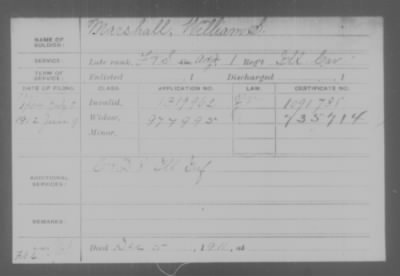 NAME OF SOLDIER: Marshall, William S.
SERVICE: Late rank, F & S Adjt 1 Reg't Ill Cav
TERM OF SERVICE: Enlisted , 1 Discharged , 1
DATE OF FILING. CLASS. APPLICATION NO. LAW. CERTIFICATE NO.
Invalid, 1319962 1091785
1912 Widow, 977995 735714
Minor,
ADDITIONAL SERVICES: Ill Inf
REMARKS:
Died Dec 5, 1911, at